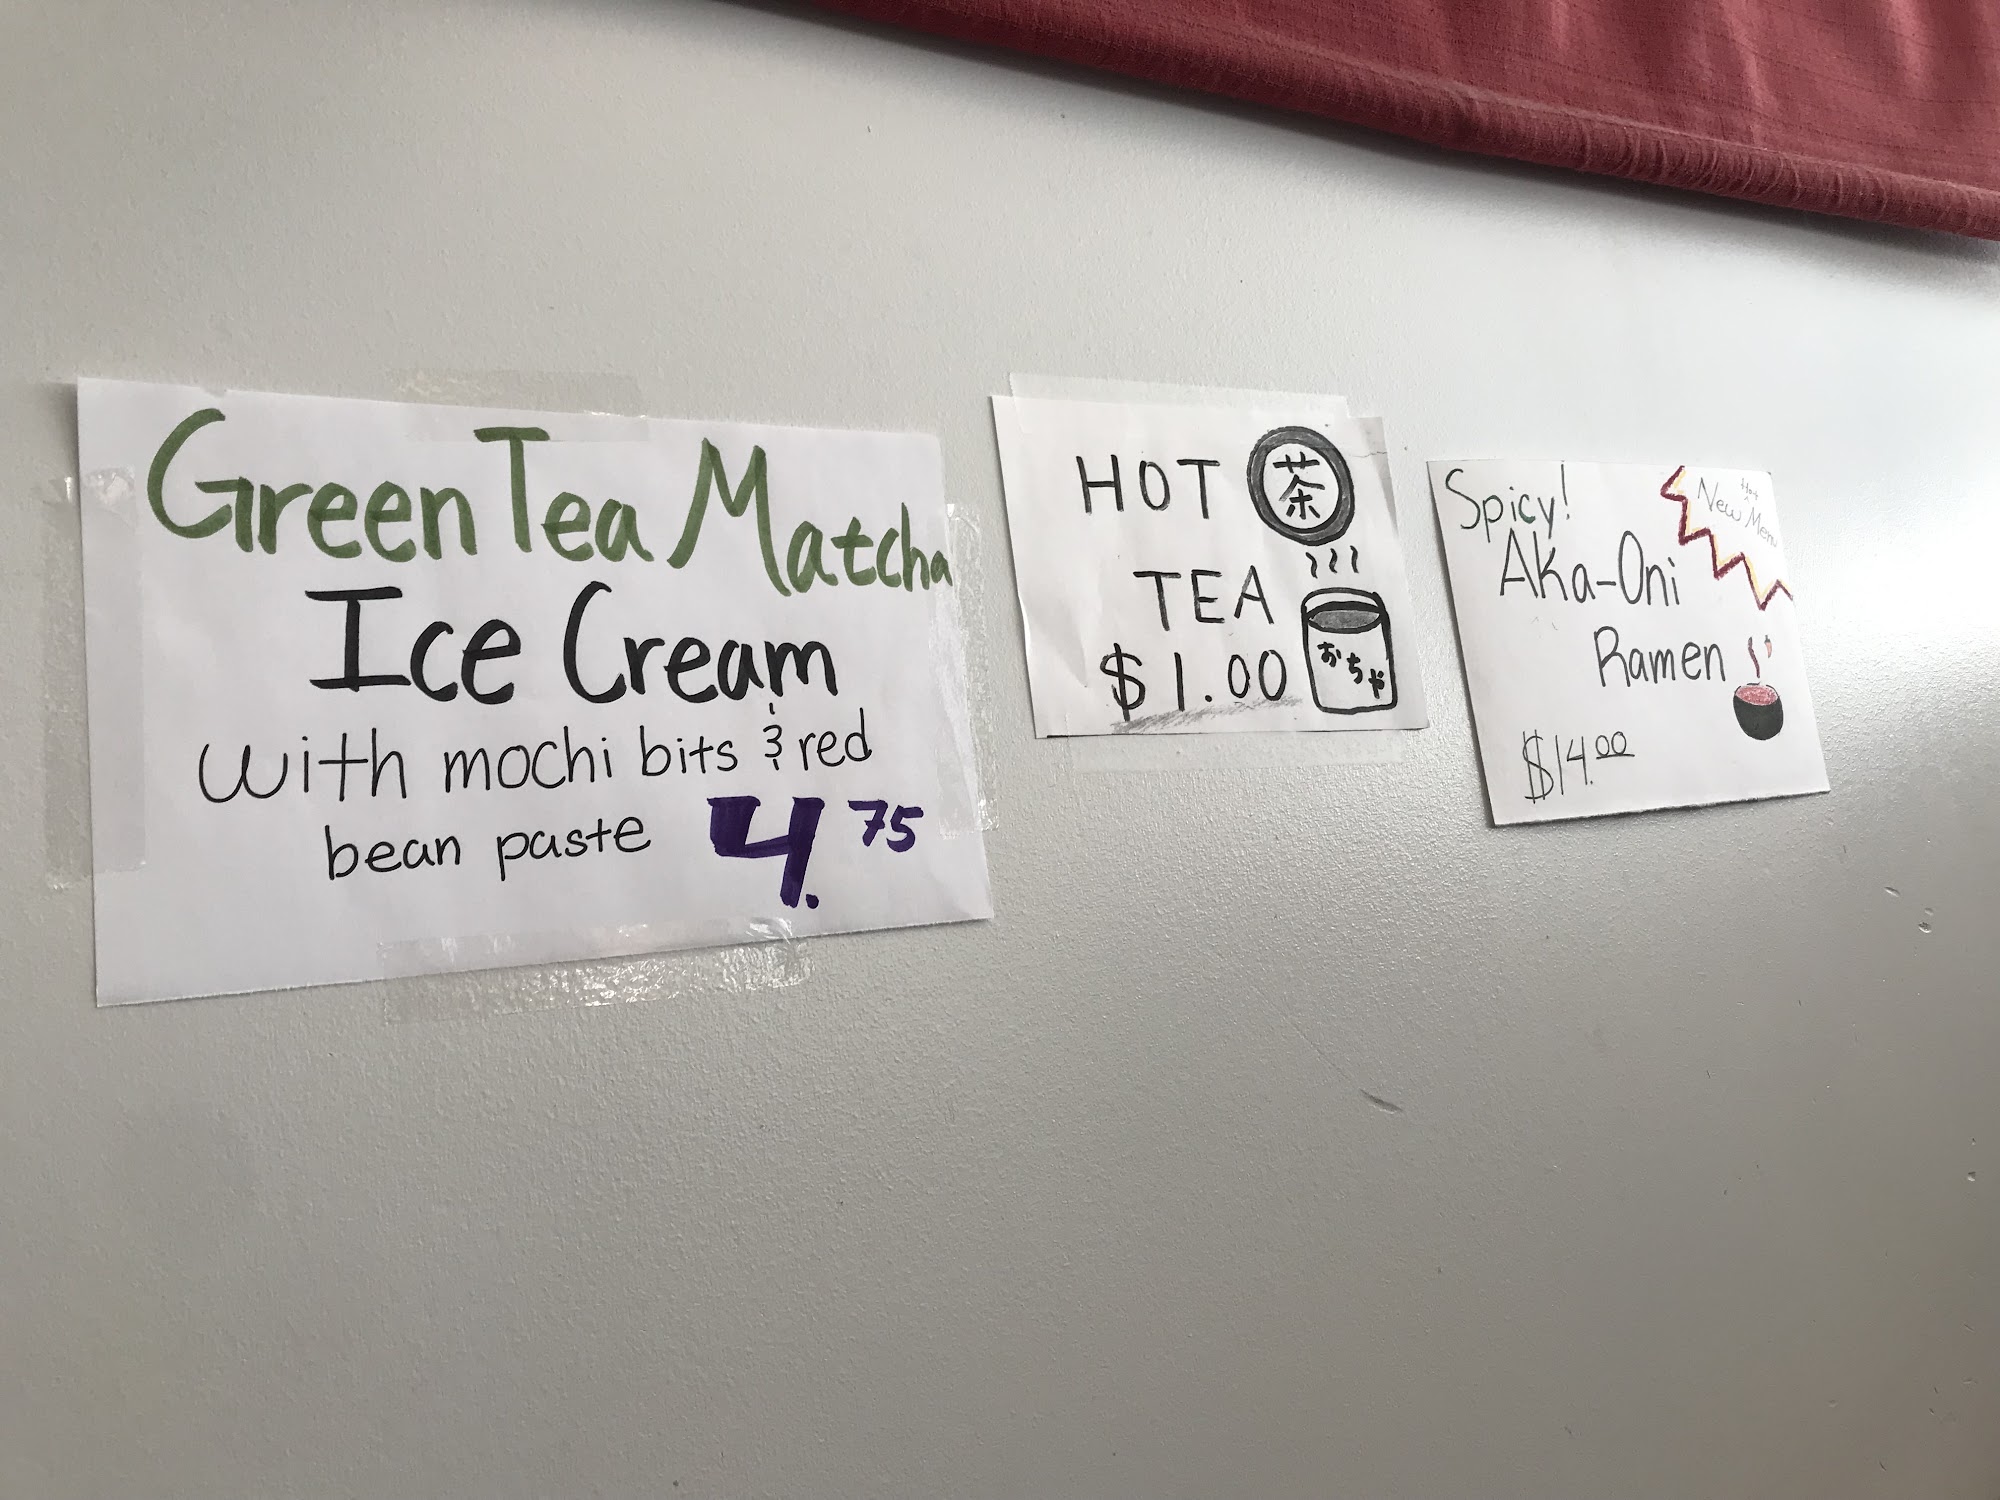 Green Tea Matcha
Ice Cream
with mochi bits & red
bean paste 4.75
HOT 茶
TEA
$1.00
おちゃ
Spicy!
Aka-Oni
Ramen
$14.00
Hot
New Menu